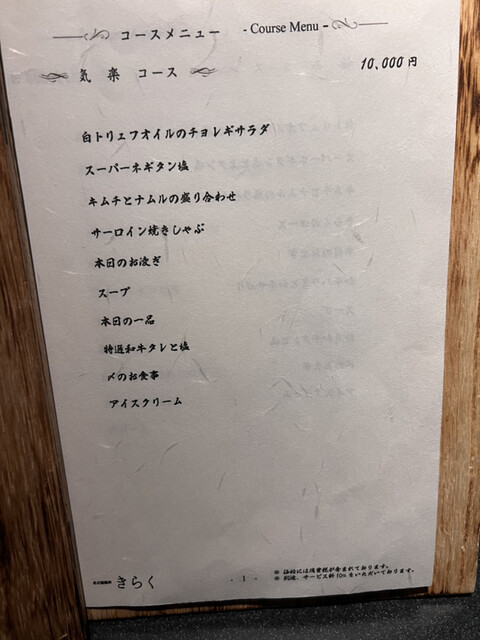 コースメニュー - Course Menu -
気楽 コース 10,000円
白トリュフオイルのチョレギサラダ
スーパーネギタン塩
キムチとナムルの盛り合わせ
サーロイン焼きしゃぶ
本日のお凌ぎ
スープ
本日の一品
特選和牛タレと塩
〆のお食事
アイスクリーム
※ 価格には消費税が含まれております。
※ 別途、サービス料10%をいただいております。
きらく - 1 -